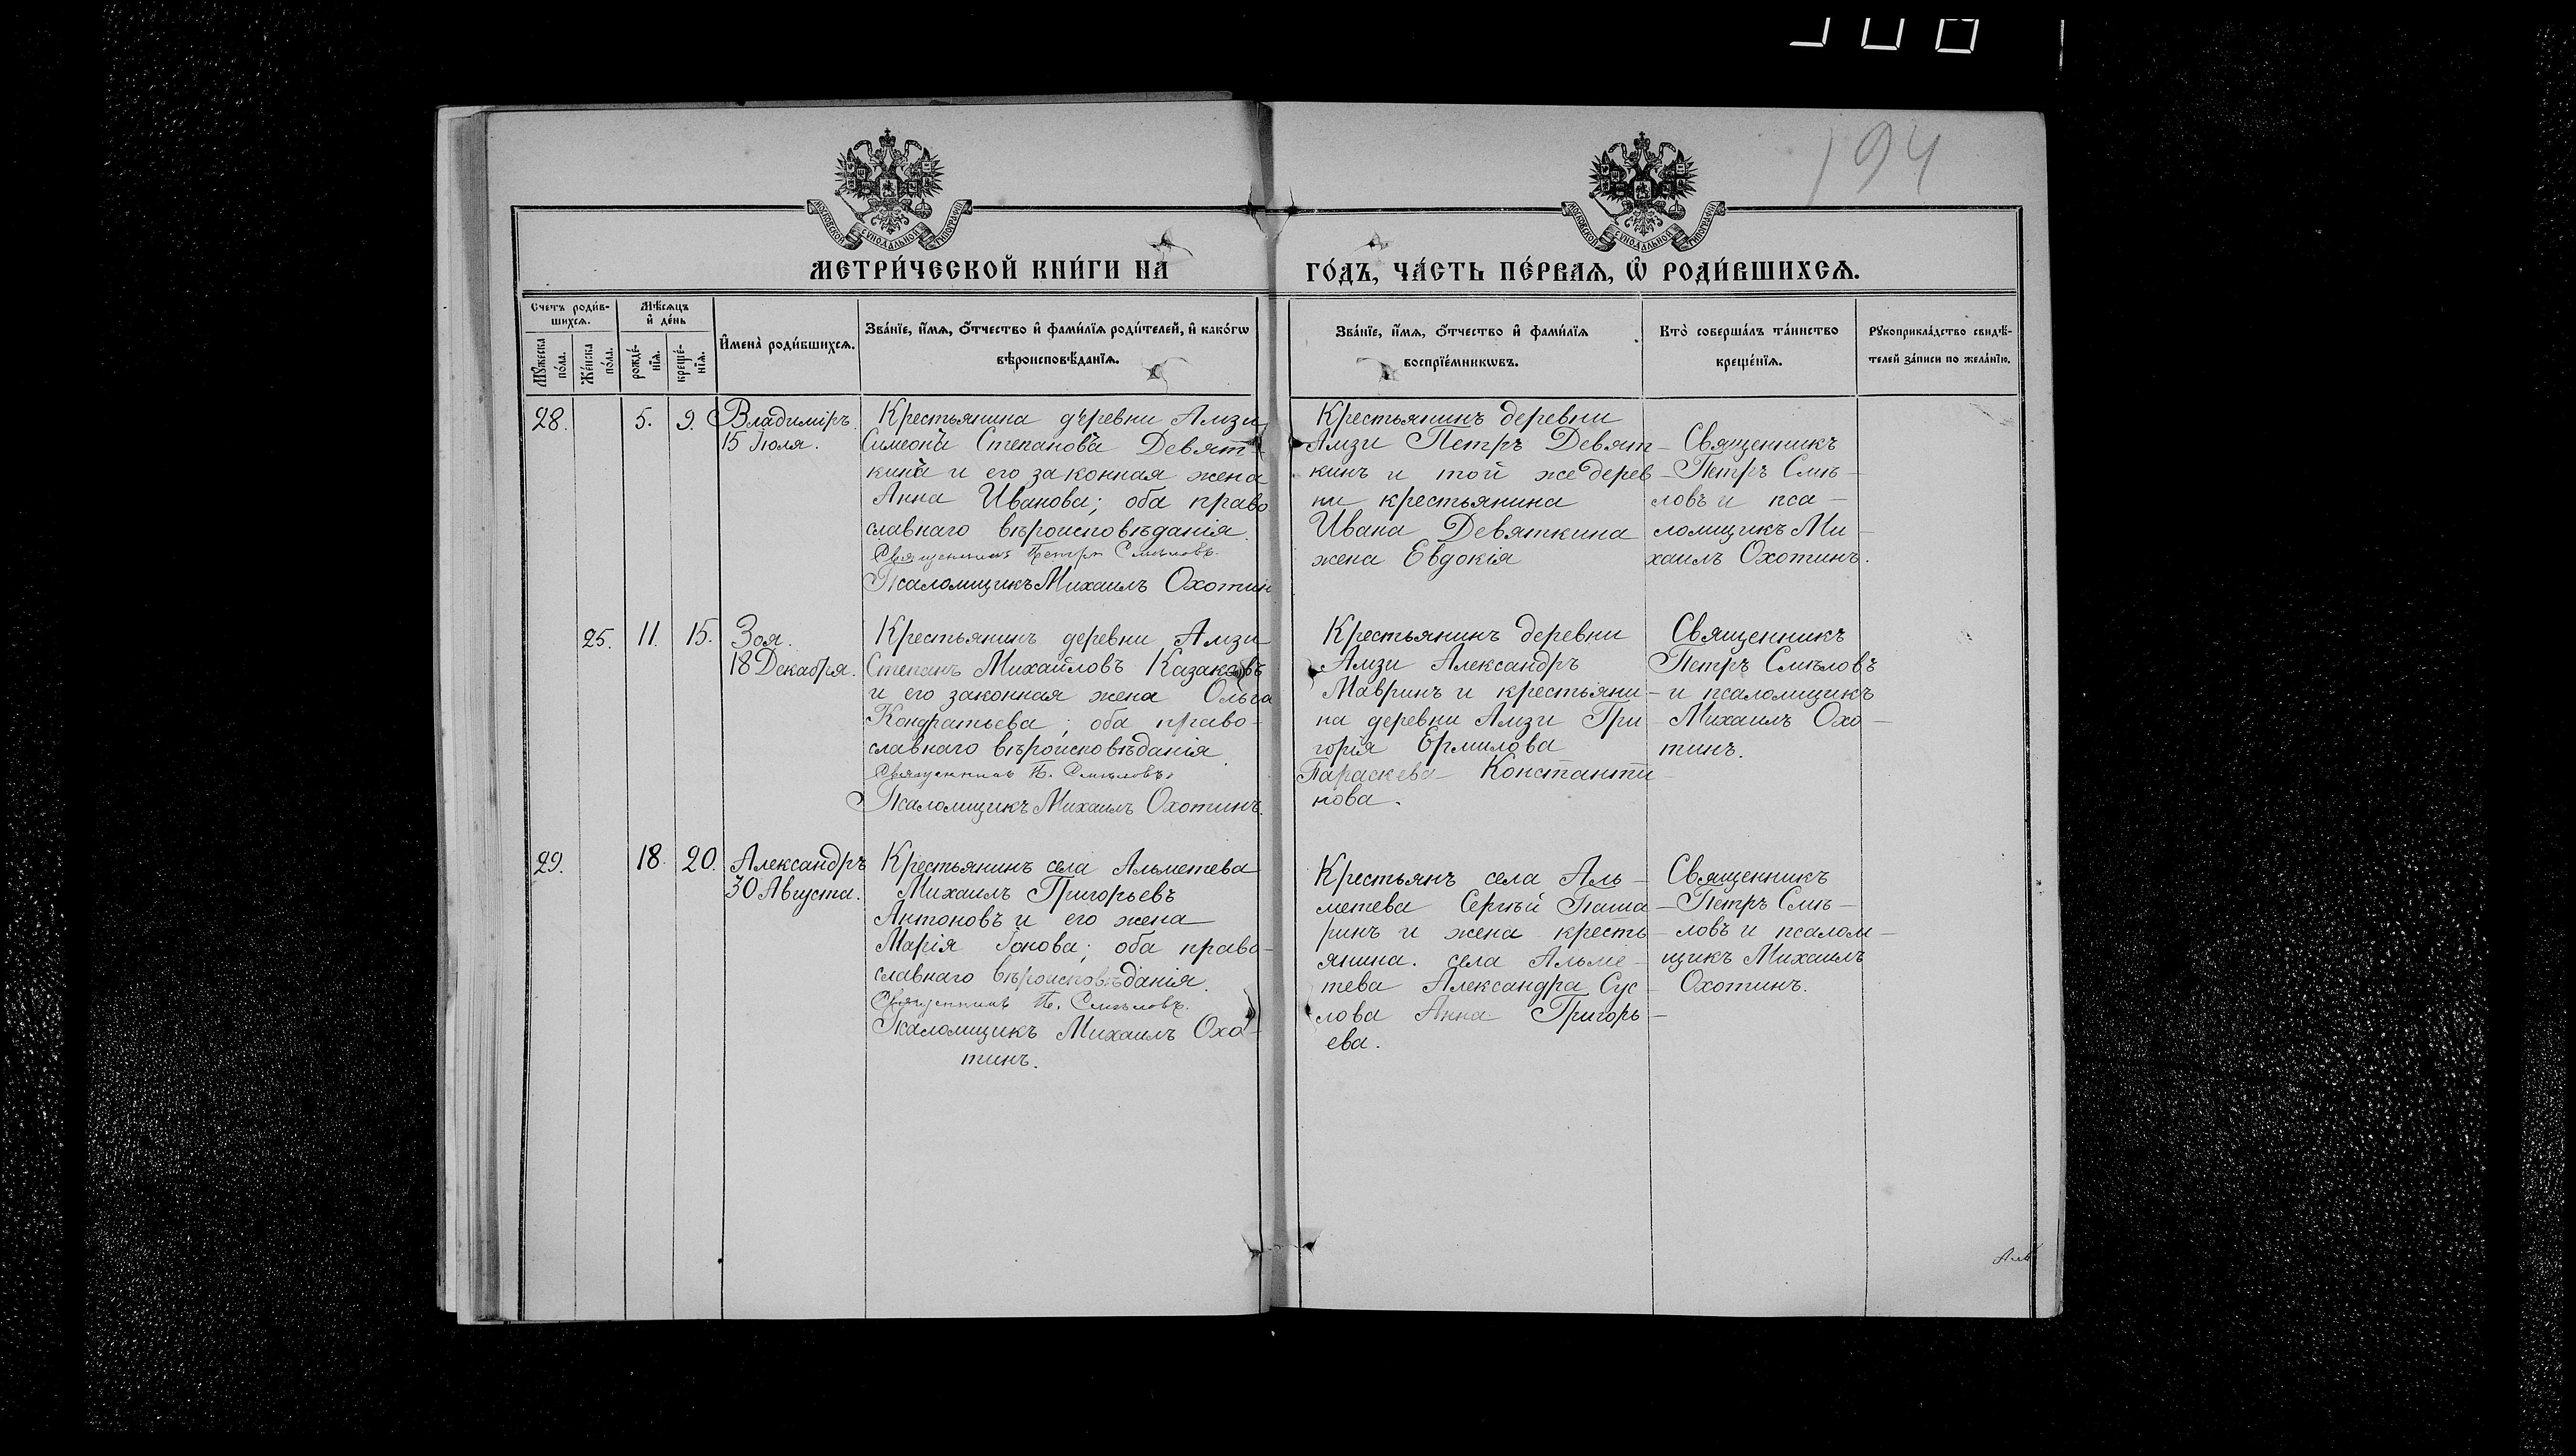 194
МОСКОВСКОЙ СѴНОДАЛЬНОЙ ТИПОГРАФІИ
МОСКОВСКОЙ СѴНОДАЛЬНОЙ ТИПОГРАФІИ
МЕТРИ́ЧЕСКОЙ КНИ́ГИ НА
ГО́ДЪ, ЧА́СТЬ ПЕ́РВАѦ, Ѡ҆ РОДИ́ВШИХСѦ.
Счетъ роди́в-
шихсѧ.
Мꙋ́жеска
по́ла.
Же́нска
по́ла.
Мѣ́сѧцъ
и҆ де́нь
рожде́-
нїѧ.
креще́-
нїѧ.
И҆мена̀ роди́вшихсѧ.
Зва́нїе, и҆́мѧ, ѻ҆́тчество и҆ фами́лїѧ роди́телей, и҆ како́гѡ
вѣроисповѣ́данїѧ.
Зва́нїе, и҆́мѧ, ѻ҆́тчество и҆ фами́лїѧ
воспрїе́мникѡвъ.
Кто̀ соверша́лъ та́инство
креще́нїѧ.
Рꙋкоприкла́дство свидѣ́-
телей за́писи по жела́нїю.
28.
5.
9.
Владиміръ.
15 Іюля.
Крестьянина деревни Амзи
Симеонъ Степановъ Девят-
кинъ и его законная жена
Анна Иванова; оба право
славнаго вѣроисповѣданія.
Священникъ Петръ Смѣловъ.
Псаломщикъ Михаилъ Охотин
Крестьянинъ деревни
Амзи Петръ Девят-
кинъ и той же дерев
ни крестьянина
Ивана Девяткина
жена Евдокія
Священникъ
Петръ Смѣ-
ловъ и пса-
ломщикъ Ми-
хаилъ Охотинъ.
25.
11.
15.
Зоя.
18 Декабря.
Крестьянинъ деревни Амзи
Степанъ Михайловъ Казаковъ
и его законная жена Ольга
Кондратьева; оба право-
славнаго вѣроисповѣданія.
Священникъ П. Смѣловъ.
Псаломщикъ Михаилъ Охотинъ.
Крестьянинъ деревни
Амзи Александръ
Мавринъ и крестьяни-
на деревни Амзи Гри-
горія Ермилова
Параскева Константи-
нова.
Священникъ
Петръ Смѣловъ
и псаломщикъ
Михаилъ Охо-
тинъ.
29.
18.
20.
Александръ
30 Августа.
Крестьянинъ села Альметева
Михаилъ Григорьевъ
Антоновъ и его жена
Марія Іонова; оба право-
славнаго вѣроисповѣданія.
Священникъ П. Смѣловъ.
Псаломщикъ Михаилъ Охо-
тинъ.
Крестьянъ села Аль-
метева Сергѣй Паша-
ринъ и жена кресть-
янина. села Альме-
тева Александра Сус-
лова Анна Григорь-
ева.
Священникъ
Петръ Смѣ-
ловъ и псалом-
щикъ Михаилъ
Охотинъ.